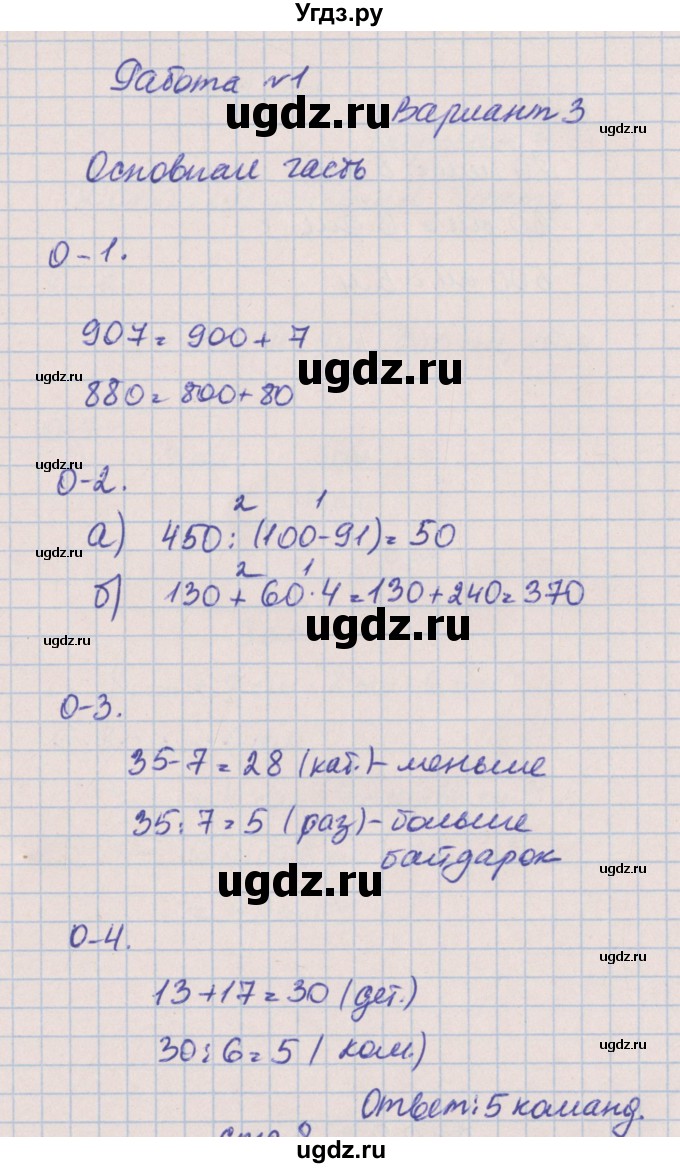 Угдз.ру
Работа №1
ugdz.ru Вариант 3 ugdz.ru
ugdz.ru
Основная часть
О-1.
907 = 900 + 7
ugdz.ru ugdz.ru
880 = 800 + 80
ugdz.ru
О-2.
2 1
ugdz.ru а) 450 : (100-91) = 50
2 1
б) 130 + 60 · 4 = 130 + 240 = 370
ugdz.ru ugdz.ru
О-3.
35-7 = 28 (кат.) - меньше
35 : 7 = 5 (раз) - больше
байдарок
ugdz.ru ugdz.ru
О-4.
ugdz.ru
13 + 17 = 30 (дет.)
30 : 6 = 5 (ком.) ugdz.ru
Ответ: 5 команд.
ugdz.ru